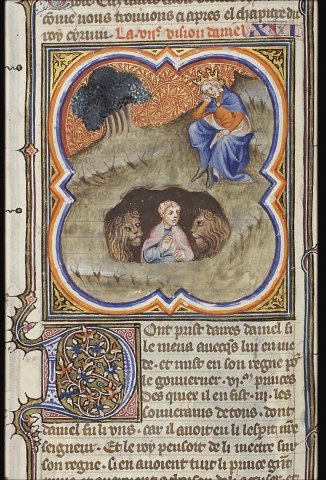 come nous trouuons ci apres el chapitre du
roy cyrum.
La vije vision daniel XVI
Dont prist daires daniel si
le mena auecques lui en me
de. et mist en son regne pour
le gouuerner .vjxx. princes
des quex il en fist .iij. les
souuerains de tous. dont
daniel fu li vns. car il auoit eu li espirit me
seigneur. Et le roy pensoit de li mectre sur
son regne. si en auoient tuit li prince grant